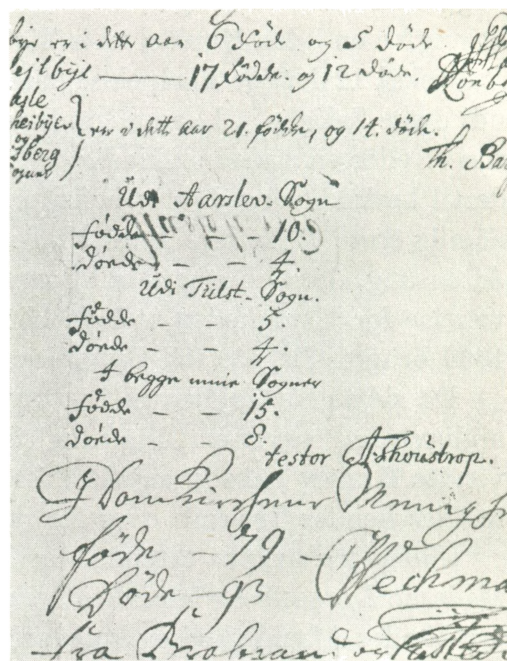 bye er i dette aar 6 føde og 5 døde
ejlbye — 17 fødde. og 12 døde.
asle
heibÿe
og
sberg
ogner
er i dette aar 21. fødde, og 14. døde.
Th.
Udi Aarslev. Sogn
fødde - - 10.
døede - - 4.
Udi Tiilst. Sogn.
fødde - - 5.
døede - - 4.
I begge mine Sogner
fødde - - 15.
døede - - 8.
testor
I Dom Kirchens Menigh
føde - 79
Døde - 93
fra Brabrand og